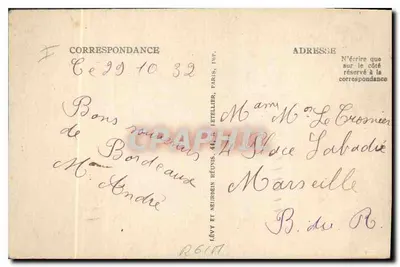 CORRESPONDANCE
Ce 29 10 32
Bons souvenirs
de Bordeaux
Mme André
LÉVY ET NEURDEIN RÉUNIS, 44, R. LETELLIER, PARIS, IMP.
ADRESSE
N'écrire que
sur le côté
réservé à la
correspondance
Mme Mr Le Crosnier
4 Place Labadie
Marseille
B. du R.
CPARAMA